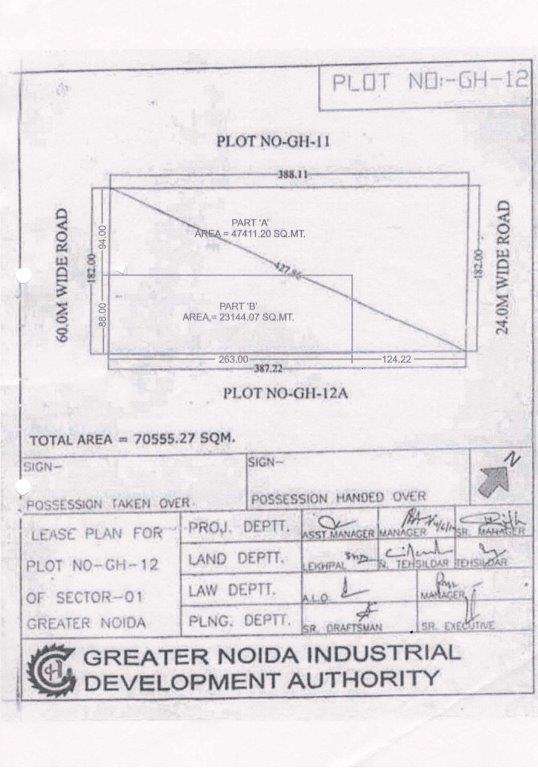 PLOT NO:-GH-12
PLOT NO-GH-11
388.11
60.0M WIDE ROAD
182.00
94.00
88.00
PART 'A'
AREA = 47411.20 SQ.MT.
PART 'B'
AREA,= 23144.07 SQ.MT.
182.00
24.0M WIDE ROAD
263.00
124.22
387.22
PLOT NO-GH-12A
TOTAL AREA = 70555.27 SQM.
SIGN-
POSSESSION TAKEN OVER
SIGN-
POSSESSION HANDED OVER
N
LEASE PLAN FOR
PLOT NO-GH-12
OF SECTOR-01
GREATER NOIDA
PROJ. DEPTT.
ASST.MANAGER
MANAGER
SR. MANAGER
LAND DEPTT.
LEKHPAL
N. TEHSILDAR
TEHSILDAR
LAW DEPTT.
A.L.O
MANAGER
PLNG. DEPTT.
SR. DRAFTSMAN
SR. EXECUTIVE
GREATER NOIDA INDUSTRIAL
DEVELOPMENT AUTHORITY